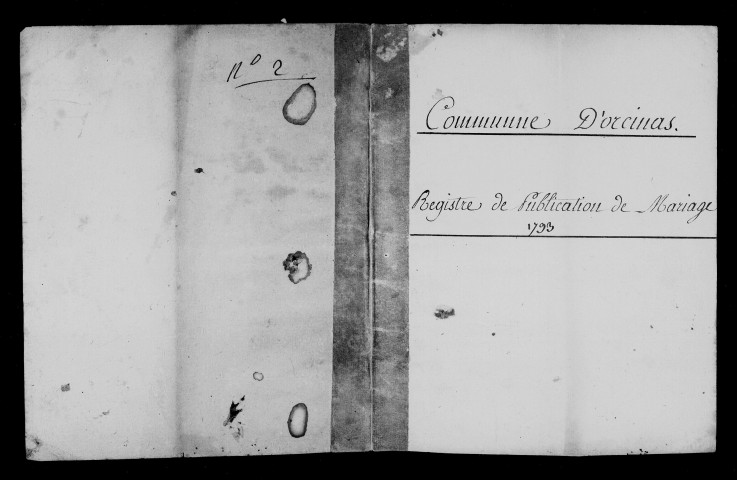 N° 2
Communne D'orcinas.
Registre de Publication de Mariage
1793